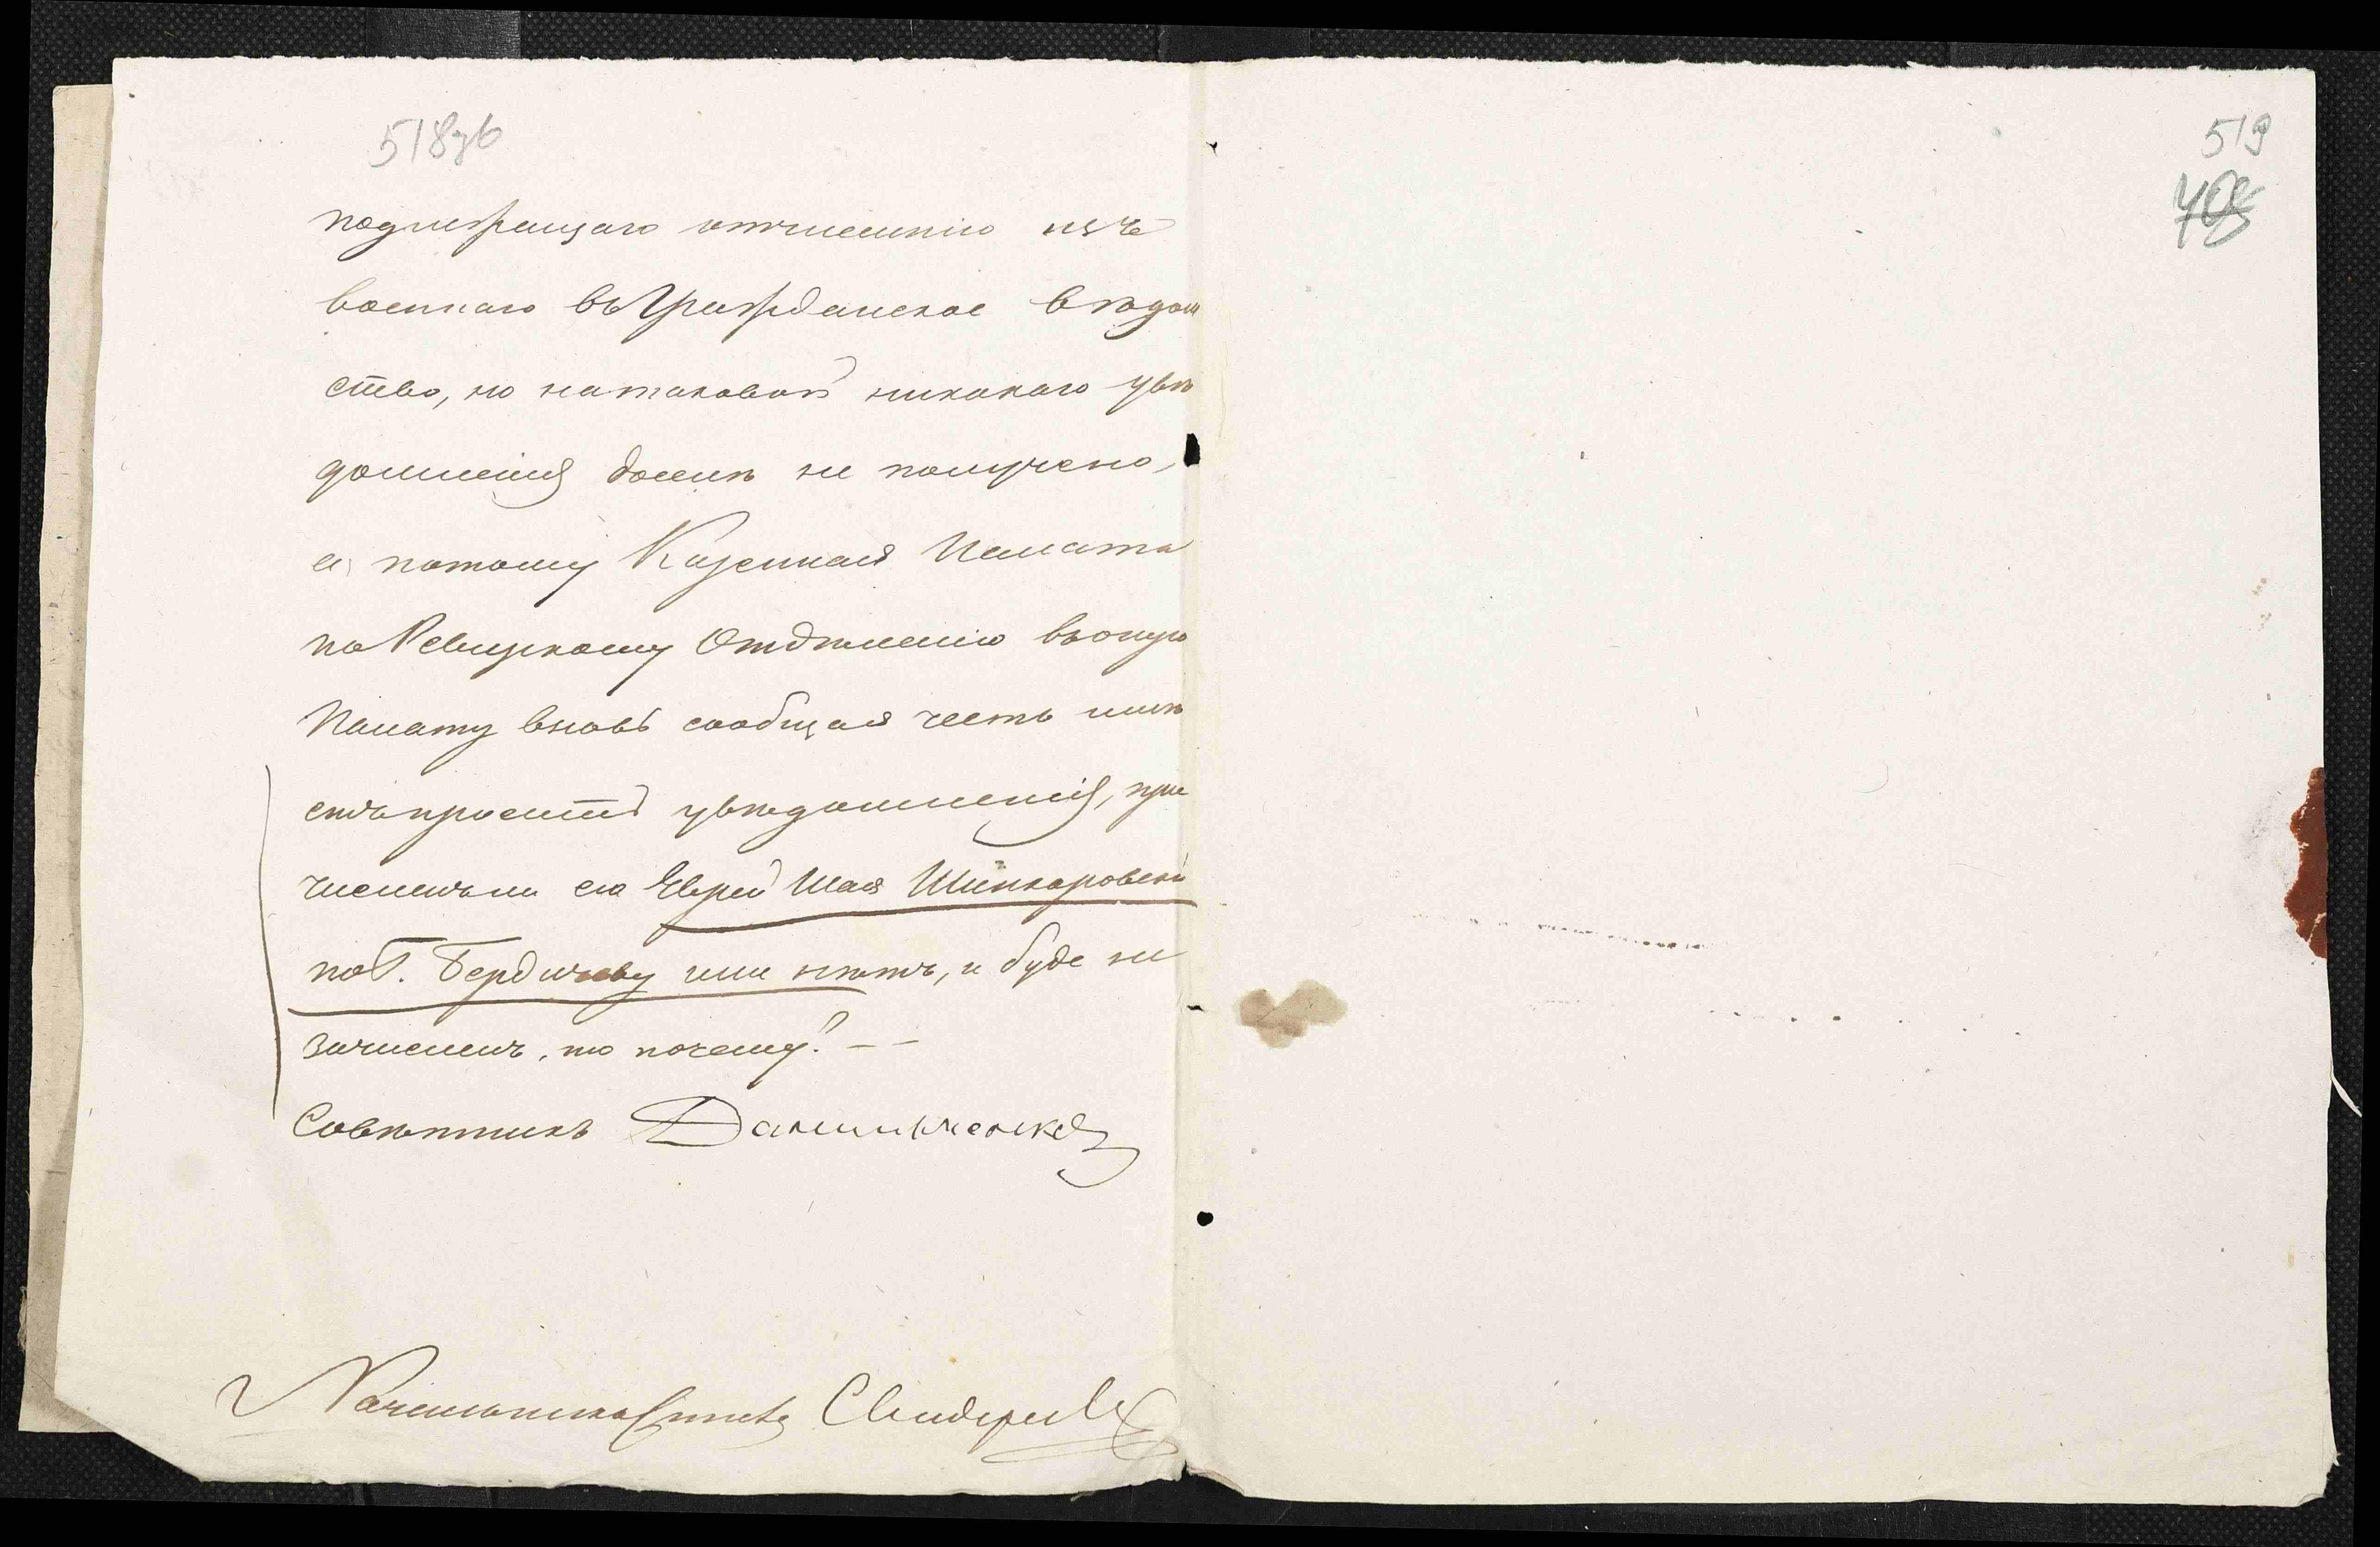 518зв
519
подлежащаго отчисленію изъ
военнаго въ Гражданское вѣдом
ство, но на таковой никакого увѣ
домленія доселѣ не получено,
а потому Казенная Палата
по Ревизскому Отдѣленію въ оную
Палату вновь сообщая честь имѣ
етъ просить увѣдомленія, при
численъ ли сей Еврей Шая Шинкаровскій
по Г. Бердичеву или нѣтъ, и буде не
зачисленъ, то почему? — —
Совѣтникъ Данильченко
Начальника